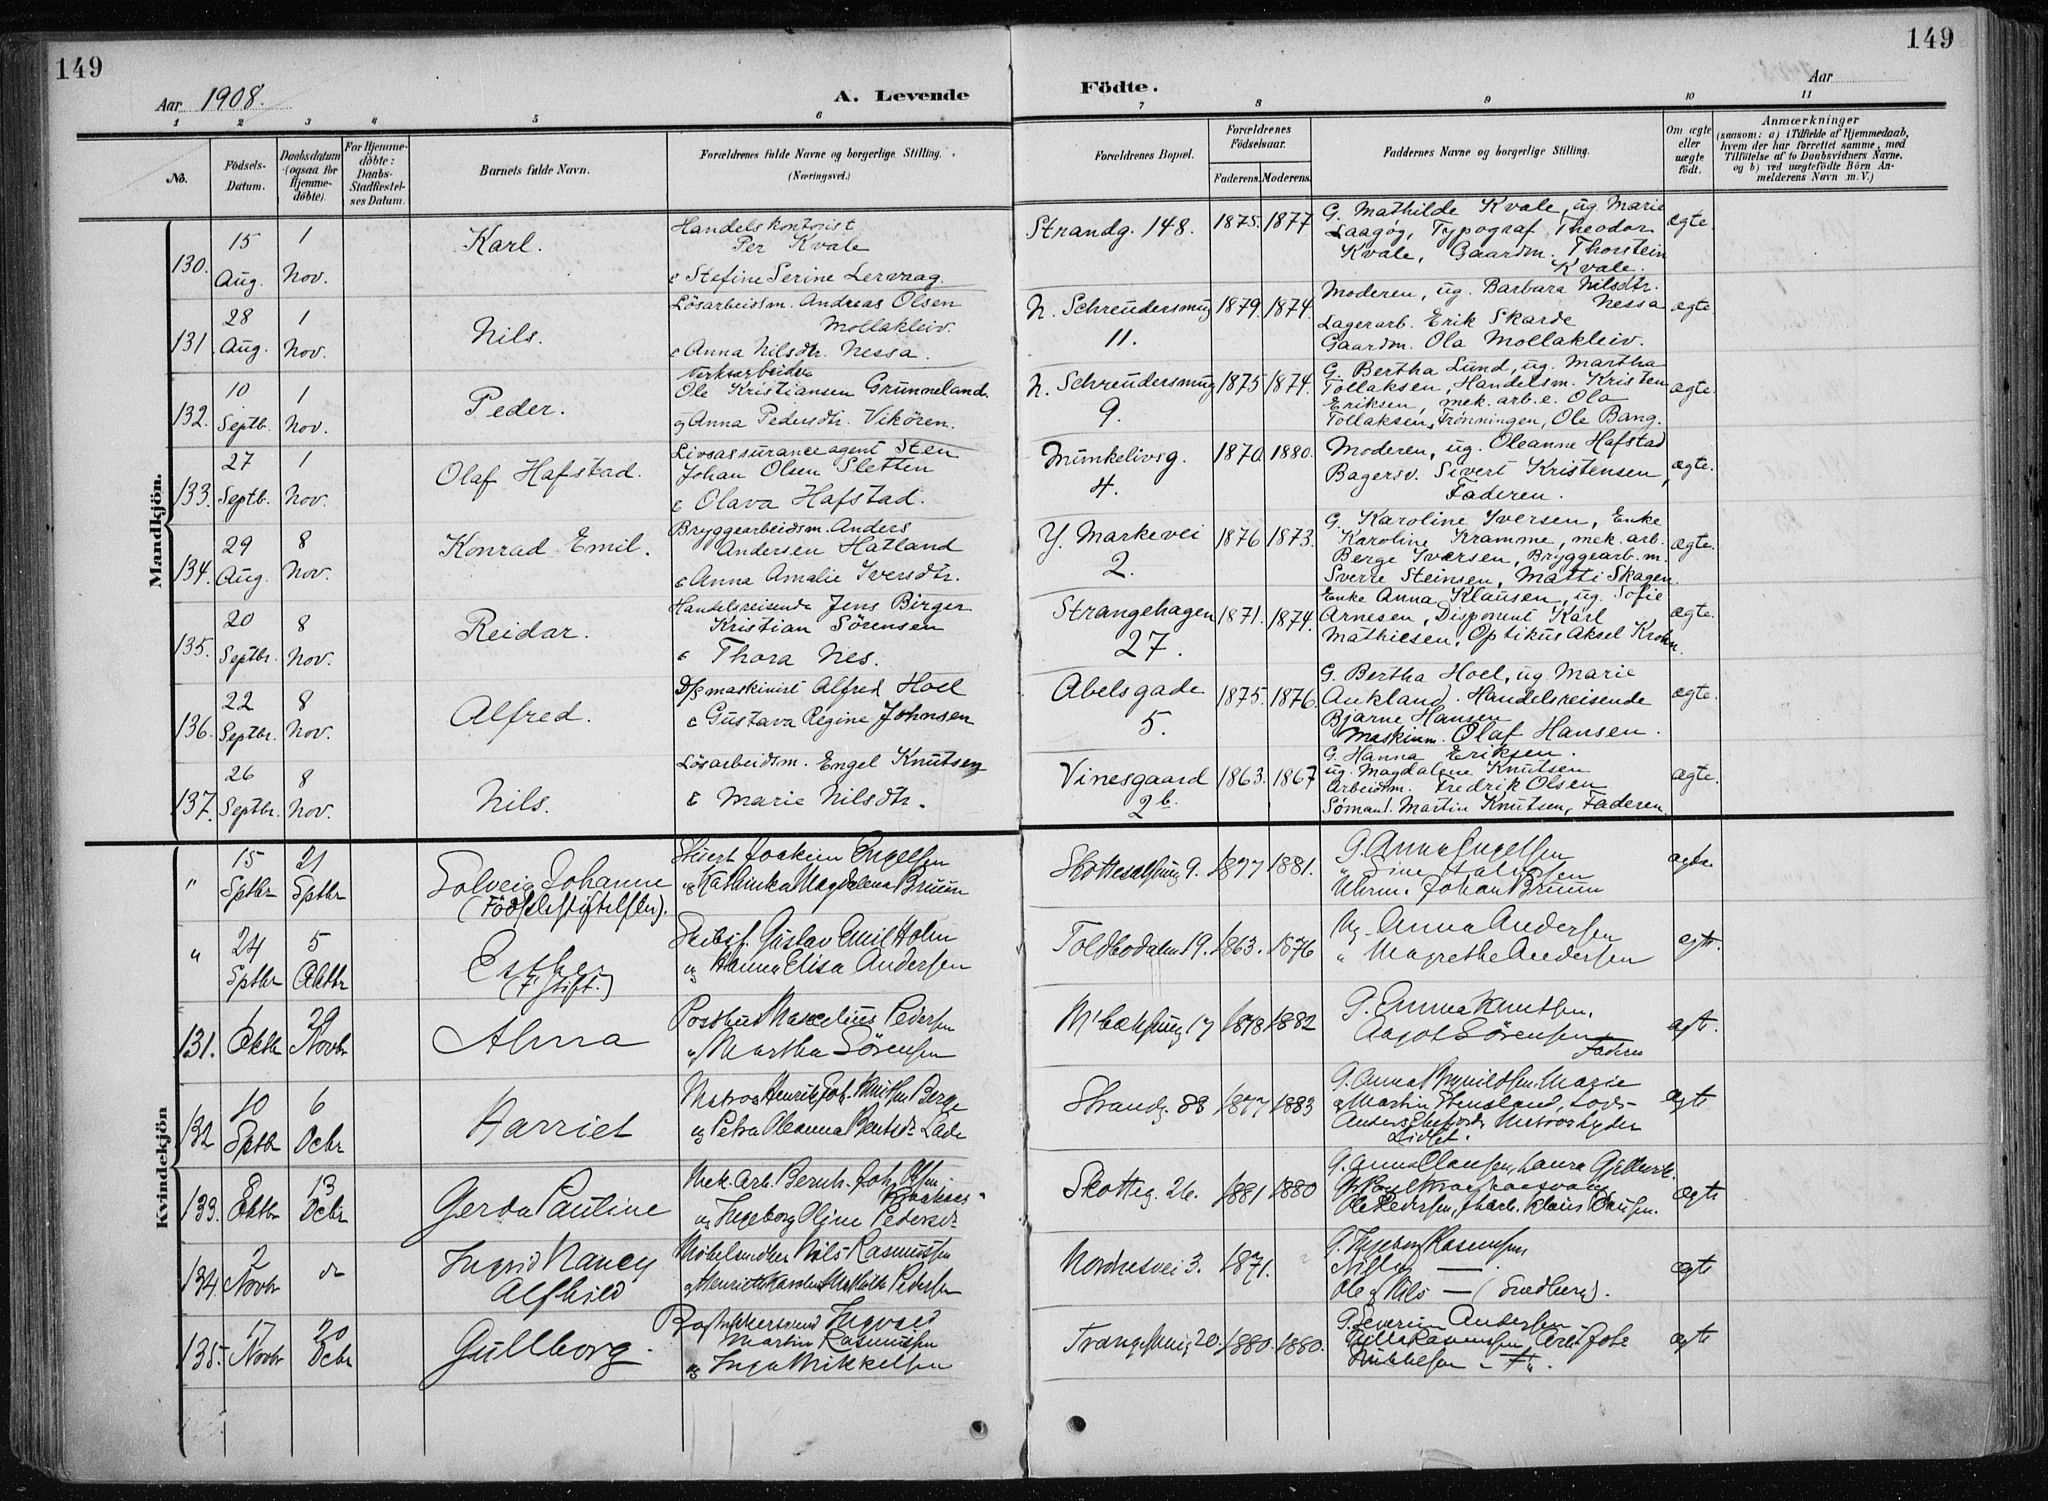 149
149
Aar 1908.
A. Levende
Födte.
Aar
1 2 3 4 5 6 7 8 9 10 11
No.
Födsels-Datum.
Daabsdatum (ogsaa for Hjemmedöbte).
For Hjemmedöbte: Daabs-Stadfæstelses Datum.
Barnets fulde Navn.
Forældrenes fulde Navne og borgerlige Stilling.
(Næringsvei.)
Forældrenes Bopæl.
Forældrenes Födselsaar.
Faderens. Moderens.
Faddernes Navne og borgerlige Stilling.
Om ægte eller uægte födt.
Anmærkninger
(saasom: a) i Tilfælde af Hjemmedaab, hvem der har forrettet samme, med Tilföielse af to Daabsvidners Navne, og b) ved uægtefödte Börn Anmelderens Navn m. V.)
Mandkjön.
130. 15 Aug. 1 Nov. Karl.
Handelskontorist
Per Kvale
& Stefine Serine Lervaag.
Strandg. 148. 1875. 1877
G. Mathilde Kvale, ug. Marie
Laagøg, Typograf Theodor
Kvale, Gaardm. Thorstein
Kvale.
ægte.
131. 28 Aug. 1 Nov. Nils.
Lösarbeidsm. Andreas Olsen
Mollakleiv.
& Anna Nilsdtr. Nessa.
N. Schreudersmug 11. 1879. 1874.
Moderen, ug. Barbara Nilsdtr.
Nessa
Lagerarb. Erik Skarde
Gaardm. Ola Mollakleiv.
ægte
132. 10 Septb. 1 Nov. Peder.
Verksarbeider
Ole Kristiansen Grunneland.
og Anna Pedersdtr. Vikören.
N. Schreudersmug 9. 1875 1874.
G. Bertha Lund, ug. Martha
Tollaksen, Handelsm. Kristen
Eriksen, mek. arb.e. Ola
Tollaksen, Trönningen, Ole Bang.
ægte.
133. 27 Septb. 1 Nov. Olaf Hafstad.
Livsassuranceagent Sten
Johan Olsen Sletten
& Olava Hafstad.
Munkelivsg. 4. 1870. 1880.
Moderen, ug. Oleanne Hafstad
Bagersv. Sivert Kristensen,
Faderen.
ægte.
134. 29 Aug. 8 Nov. Konrad Emil.
Bryggearbeidsm. Anders
Andersen Hatland
& Anna Amalie Iversdtr.
Y. Markevei 2. 1876 1873.
G. Karoline Iversen, Enke
Karoline Kramme, mek. arb.
Berge Iversen, Bryggearb.m.
Sverre Steinsen, Matti Skagen.
ægte.
135. 20 Septbr. 8 Nov. Reidar.
Handelsreisende Jens Birger
Kristian Sörensen
& Thora Nes.
Strangehagen 27. 1871. 1874.
Enke Anna Klausen, ug. Sofie
Arnesen, Disponent Karl
Mathiesen, Optikus Aksel Krohn.
ægte.
136. 22 Septbr. 8 Nov. Alfred.
D/s maskinist Alfred Hoel
& Gustava Regine Johnsen
Abelsgade 5. 1875. 1876.
G. Bertha Hoel, ug. Marie
Aukland. Handelsreisende
Bjarne Hansen
Maskinm. Olaf Hansen.
ægte.
137. 26 Septbr. 8 Nov. Nils.
Lösarbeidsm. Engel Knutsen
& Marie Nilsdtr.
Vinesgaard 2b. 1863. 1867
G. Hanna Eriksen.
ug. Magdalene Knutsen
Arbeidsm. Fredrik Olsen
Sömand. Martin Knutsen, Faderen
ægte.
Kvindekjön
" 15 Sptbr 21 Sptbr Solveig Johanne
(Födselsstiftelsen).
Joakim Engelsen
og Kathinka Magdalena Bruun
9. 1877 1881.
G. Anna Engelsen
Uhrm. Johan Bruun
ægte
" 24 Sptbr 5 Oktbr Esther
(F. stift.)
Gustav Emil Holm
og Hanna Elisa Andersen
Toldbodalm 19. 1863. 1876
Ug. Anna Andersen
" Magrethe Andersen
ægte.
131. 1 Oktb 29 Novbr Alma
Postbud Marcelius Pedersen
og Martha Sörensen
17 1878 1882
G. Emma Knutsen,
Aagot Sörensen
Faderen
ægte.
132 10 Sptbr 6 Decbr Harriet
Matros Henrik Joh. Knutsen Berge
og Petra Oleanna Bentsdr Lade
Strandg. 88 1877 1883
ægte
133. 8 Oktbr 13 Decbr Gerda Pauline
Mek. Arb. Bernh. Joh. Olsen
og Ingeborg Oline Pedersdr
Skotteg. 26. 1881 1880
G. Anna Clausen, Laura
Ole Pedersen, Klaus Clausen.
ægte
134. 2 Novbr do Ingrid Nancy
Alfhild
Möbelsnedker Nils Rasmussen
og Henriette Karoline Mathilde Pedersen
Nordnesvei 3. 1871.
G. Ingeborg Rasmussen
Nelly —
Ole og Nils — (Snedkere).
ægte
135. 17 Novbr 20 Decbr Gullborg.
Ingvald
Martin Rasmussen
og Inga Mikkelsen
20. 1880. 1880.
G. Severine Andersen
ægte